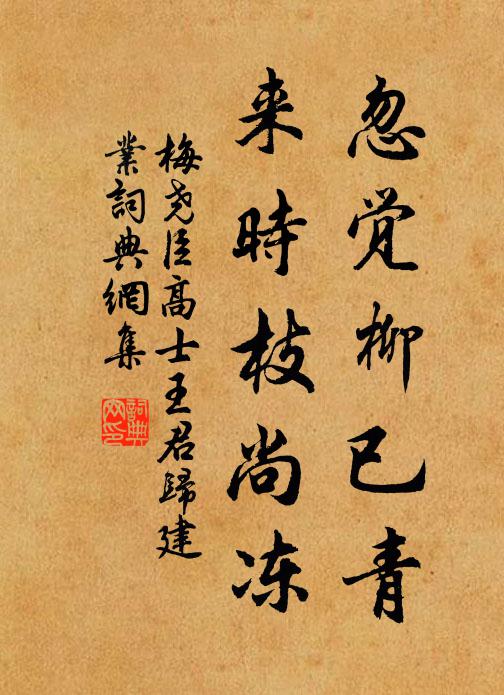 忽觉柳已青
来時枝尚冻
梅尧臣高士王君歸建
業詞典網集
詞典
网印